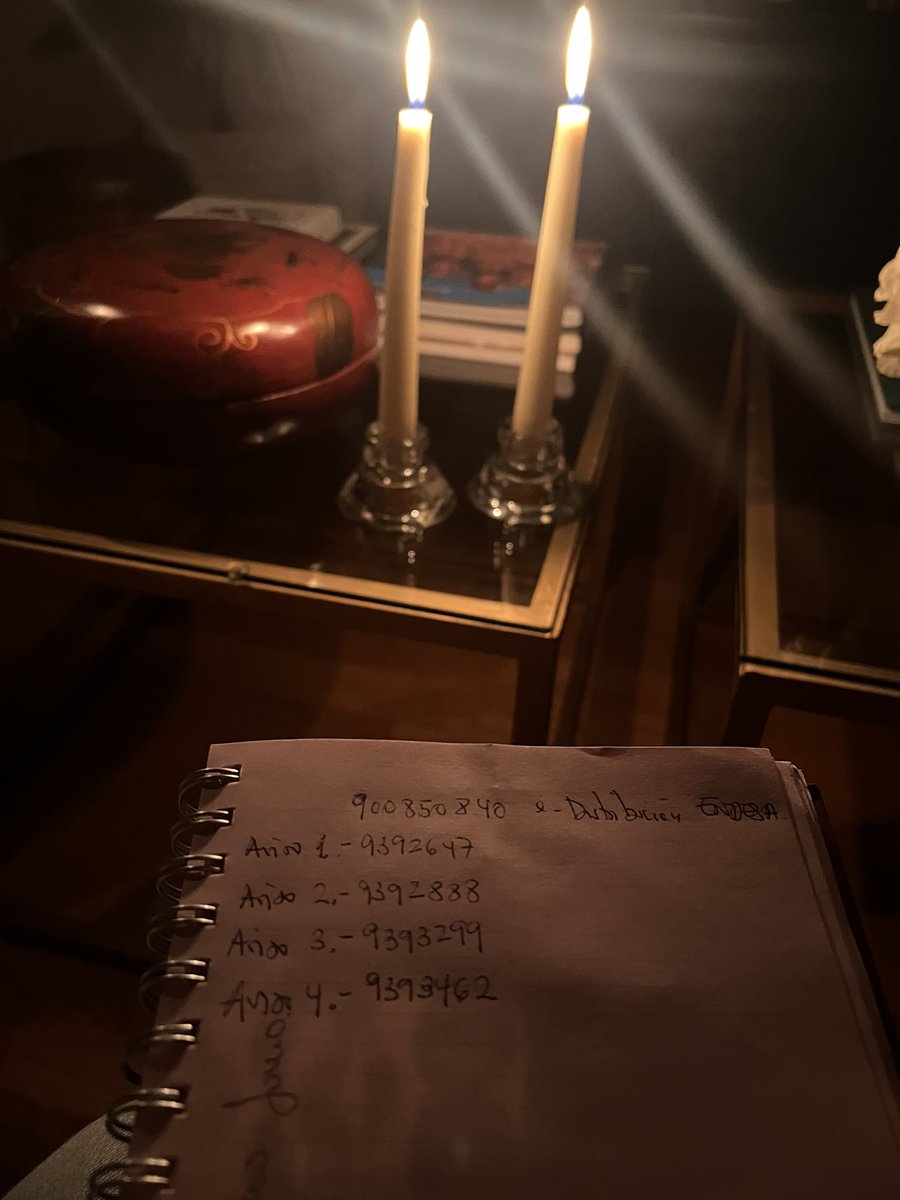 900850840 e-Distribución ENDESA
Aviso 1.- 9392647
Aviso 2.- 9392888
Aviso 3.- 9393299
Aviso 4.- 9393462